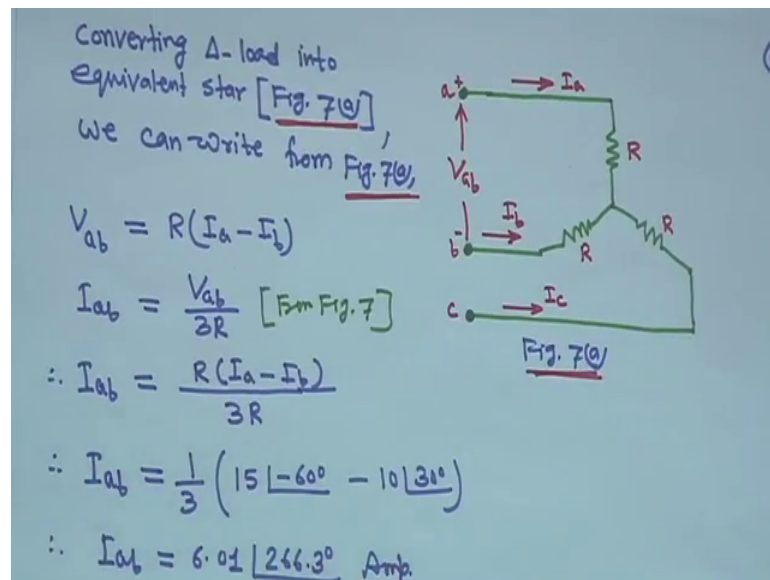 Converting Δ-load into
equivalent star [Fig. 7(a)],
we can write from Fig. 7(a),
V_ab = R(I_a - I_b)
I_ab = V_ab / 3R [From Fig. 7]
∴ I_ab = R(I_a - I_b) / 3R
∴ I_ab = 1/3 (15∠-60° - 10∠30°)
∴ I_ab = 6.01∠266.3° Amp.
a +
I_a
R
V_ab
I_b
R
b -
R
c
I_c
Fig. 7(a)